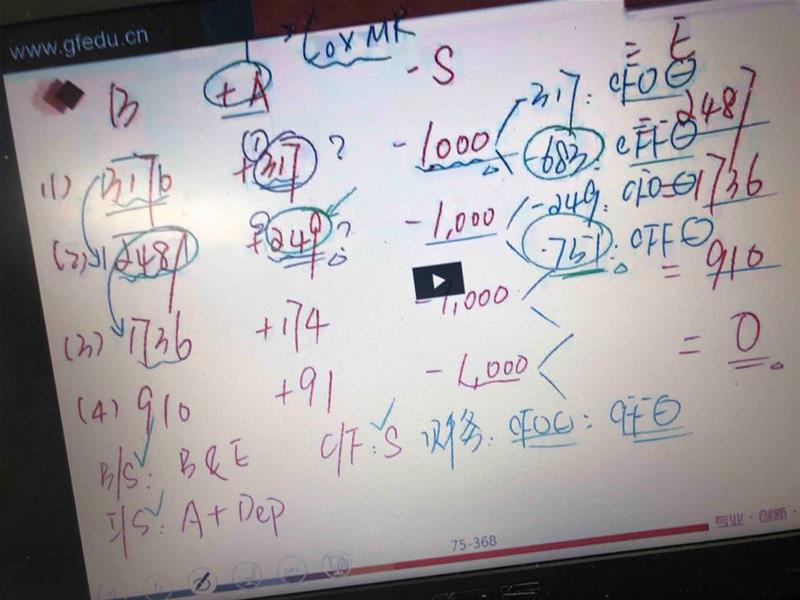 www.gfedu.cn
LoxMR
B + A - S = E
(1) 3170 + 317 ? - 1000 317: CFO ⊖ = 2487
-683: CFF ⊖
(2) 2487 + 249 ? - 1,000 -249: CFO ⊖ = 1736
-751: CFF ⊖
(3) 1736 + 174 - 1,000 = 910
(4) 910 + 91 - 1,000 = 0
B/S: B & E C/F: S 财务: CFO⊖: CFF ⊖
I/S: A + Dep
75-368
专业·创新·